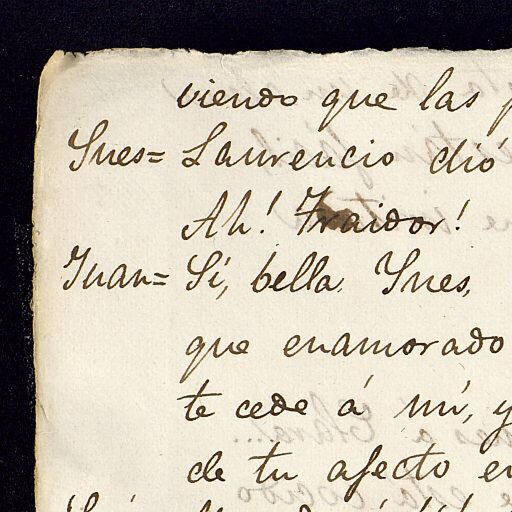 viendo que las
Ynes= Laurencio dió
Ah! Traidor!
Juan= Sí, bella Ynes,
que enamorado
te cede á mí, y
de tu afecto en